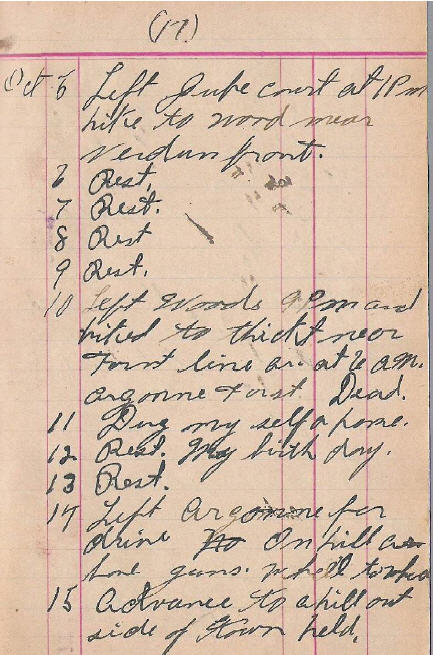 (17)
Oct 5 Left Jube court at 1 Pm
hike to wood near
Verdun front.
6 Rest.
7 Rest.
8 Rest
9 Rest.
10 Left Woods 9 Pm and
hiked to thickt near
Front line ar. at 6 am.
argonne Forst. Dead.
11 Dug my self a home.
12 Rest. My birth day.
13 Rest.
14 Left Argonne for
drive On hill
guns.
15 advance to a hill out
side of town held,